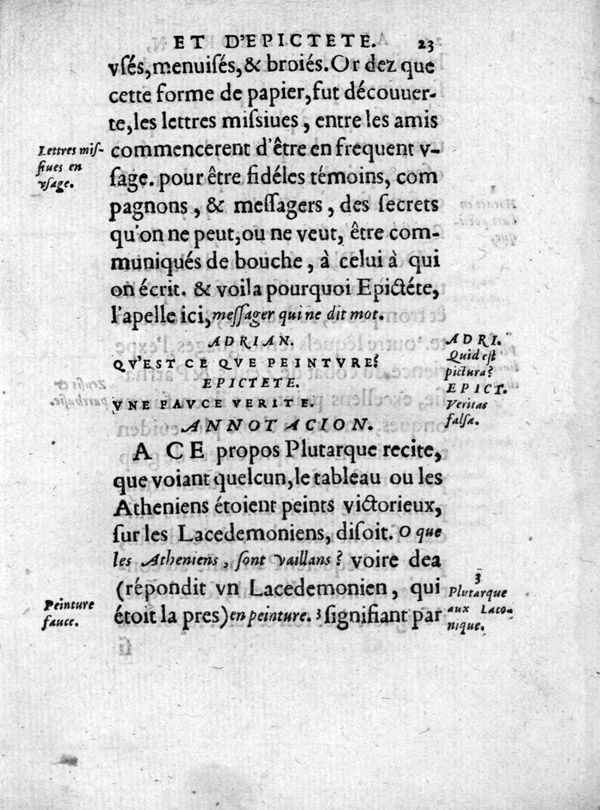 ET D'EPICTETE. 23
vſés, menuisés, & broiés. Or dez que
cette forme de papier, fut découuer-
te, les lettres miſsiues, entre les amis
Lettres miſ-
ſiues en
vſage.
commencerent d'être en frequent v-
ſage. pour être fidéles témoins, com
pagnons, & meſſagers, des ſecrets
qu'on ne peut, ou ne veut, être com-
muniqués de bouche, à celui à qui
on écrit. & voila pourquoi Epictéte,
l'apelle ici, meſſager qui ne dit mot.
ADRIAN.
QV'EST CE QVE PEINTVRE?
EPICTETE.
VNE FAVCE VERITE.
ADRI.
Quid eſt
pictura?
EPICT.
Veritas
falſa.
ANNOTACION.
A CE propos Plutarque recite,
que voiant quelcun, le tableau ou les
Atheniens étoient peints victorieux,
ſur les Lacedemoniens, diſoit. O que
les Atheniens, ſont vaillans? voire dea
(répondit vn Lacedemonien, qui
étoit la pres) en peinture. 3 ſignifiant par
Peinture
fauce.
3
Plutarque
aux Laco-
nique.